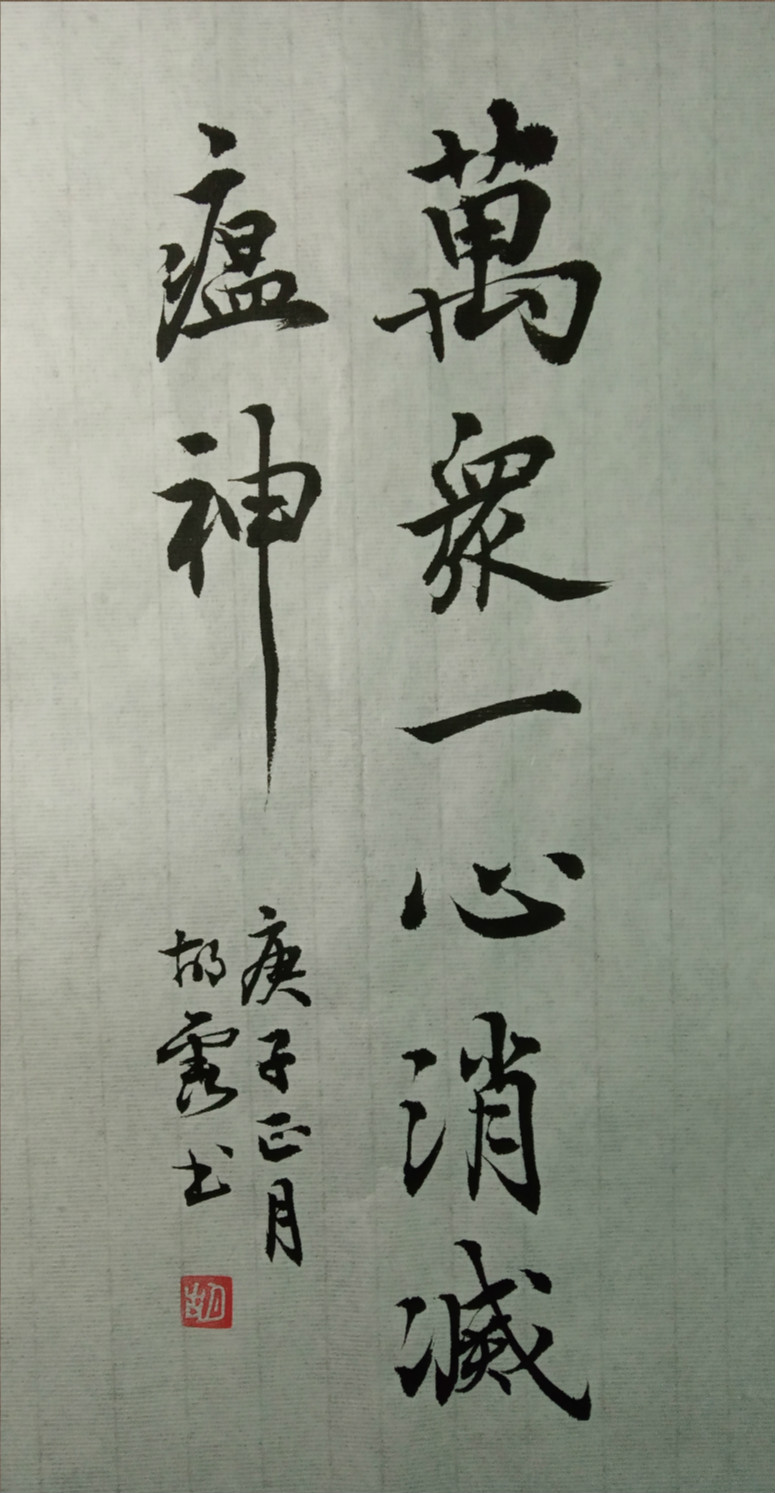 萬眾一心消滅
瘟神
庚子正月
胡露书
胡